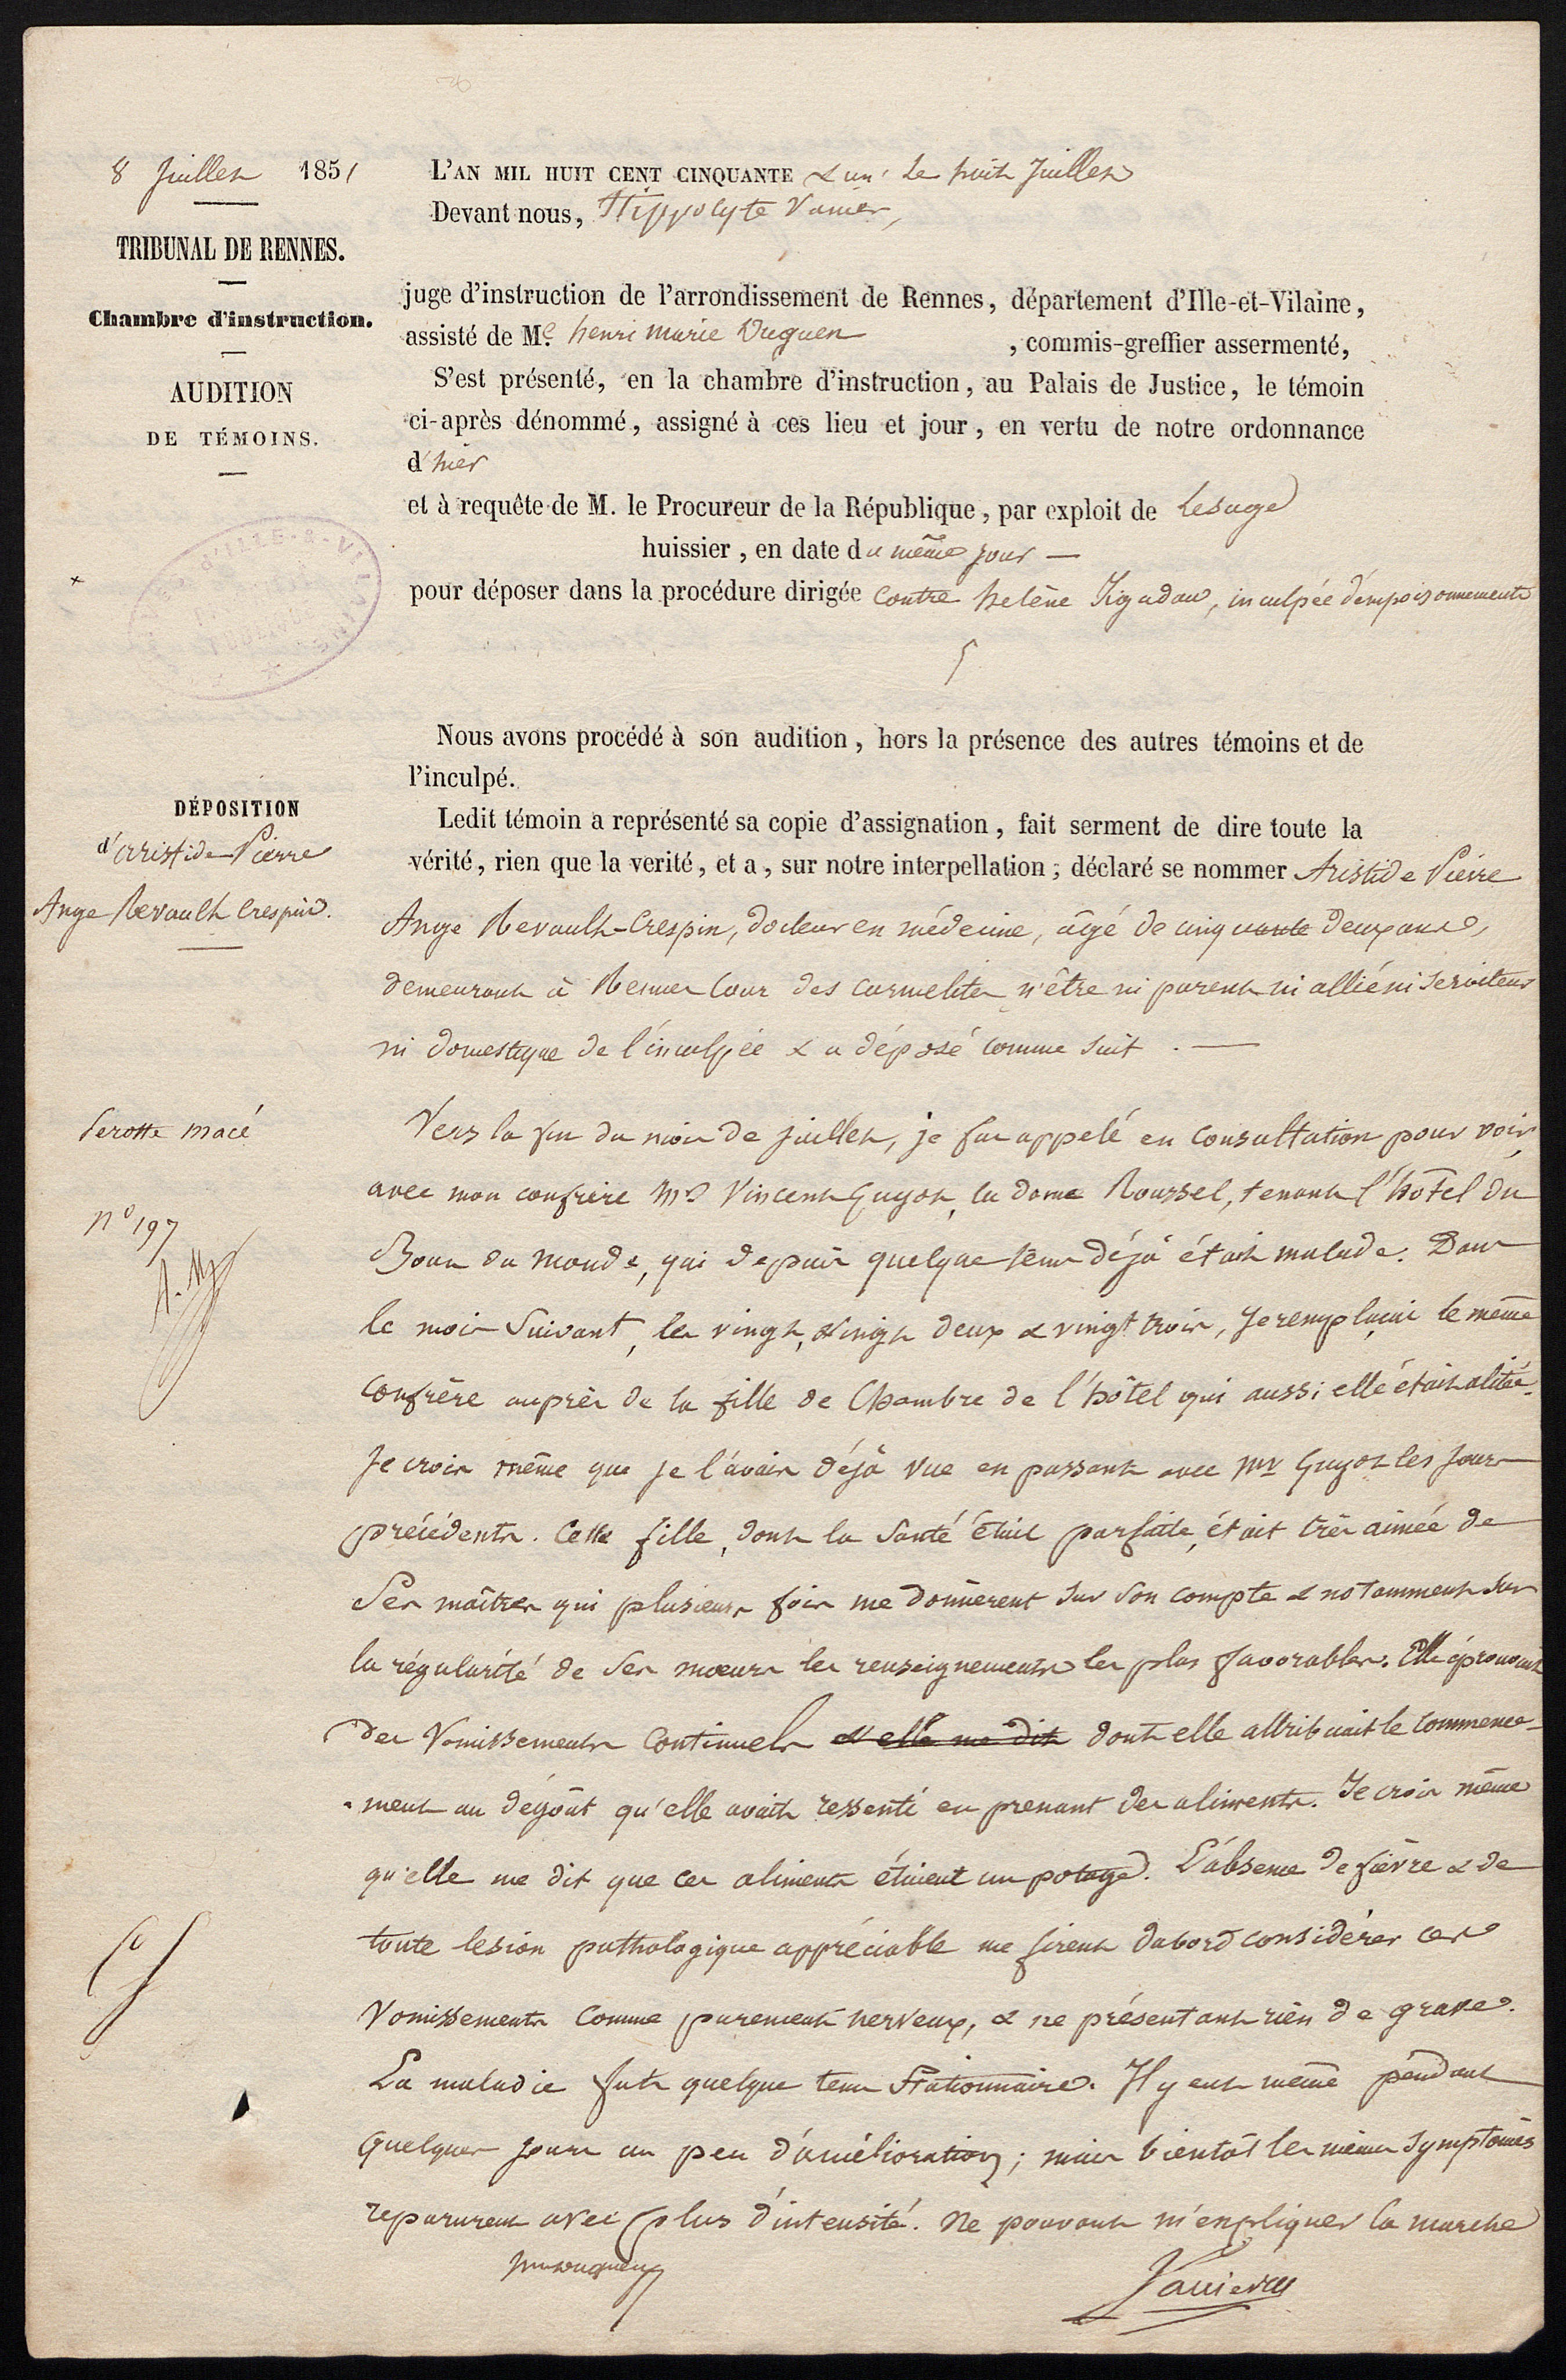 8 Juillet 1851
TRIBUNAL DE RENNES.
Chambre d'instruction.
AUDITION
DE TÉMOINS.
L'AN MIL HUIT CENT CINQUANTE & un le huit Juillet
Devant nous, Hippolyte Vannier,
juge d'instruction de l'arrondissement de Rennes, département d'Ille-et-Vilaine,
assisté de Me. henri marie Duguen , commis-greffier assermenté,
S'est présenté, en la chambre d'instruction, au Palais de Justice, le témoin
ci-après dénommé, assigné à ces lieu et jour, en vertu de notre ordonnance
d'hier
et à requête de M. le Procureur de la République, par exploit de Lesage
huissier, en date du même jour —
pour déposer dans la procédure dirigée contre helène Jégadau, inculpée d'empoisonnements
Nous avons procédé à son audition, hors la présence des autres témoins et de
l'inculpé.
DÉPOSITION
d'Aristide Pierre
Ange Revault Crespin.
Ledit témoin a représenté sa copie d'assignation, fait serment de dire toute la
vérité, rien que la verité, et a, sur notre interpellation; déclaré se nommer Aristide Pierre
Ange Revault-Crespin, docteur en médecine, âgé de cinquante deux ans,
demeurant à Rennes Cour des carmelites n'être ni parent ni allié ni serviteur
ni domestique de l'inculpée & a déposé comme suit . —
perotte macé
n° 197
Vers la fin du mois de juillet, je fus appelé en consultation pour voir,
avec mon confrère Mr Vincent Guyot, la dame Roussel, tenant l'hôtel du
Bout du monde, qui depuis quelque tems déjà était malade. Dans
le mois suivant, les vingt, vingt deux & vingt trois, Je remplaçai le même
confrère auprès de la fille de Chambre de l'hôtel qui aussi elle était alitée.
Je crois même que je l'avais déjà vue en passant avec Mr Guyot les jours
précédents. Cette fille, dont la santé était parfaite, était très aimée de
ses maîtres qui plusieurs fois me donnèrent sur son compte & notamment sur
la régularité de ses mœurs les renseignements les plus favorables. Elle éprouvait
des Vomissements continuels & elle me dit dont elle attribuait le commence-
-ment au dégoût qu'elle avait ressenti en prenant des aliments. Je crois même
qu'elle me dit que ces aliments étaient un potage. L'absence de fièvre & de
toute lesion pathologique appréciable me firent dabord considérer ces
Vomissements comme purement nerveux, & ne présentant rien de grave.
La maladie fut quelque tems stationnaire. Il y eut même pendant
quelques jours un peu d'amélioration; mais bientôt les mêmes symptômes
reparurent avec plus d'intensité. Ne pouvant m'expliquer la marche
Vannier